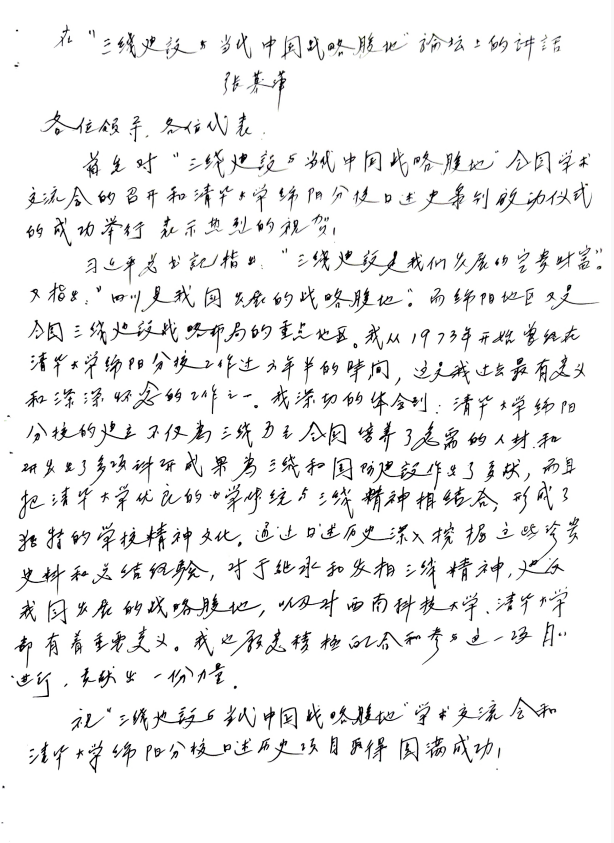 在“三线建设与当代中国战略腹地”论坛上的讲话
张慕葏
各位领导、各位代表：
首先对“三线建设与当代中国战略腹地”全国学术
交流会的召开和清华大学绵阳分校口述史系列启动仪式
的成功举行表示热烈的祝贺！
习近平总书记指出：“三线建设是我们发展的宝贵财富”。
又指出：“四川是我国发展的战略腹地”。而绵阳地区又是
全国三线建设战略布局的重点地区。我从1973年开始曾经在
清华大学绵阳分校工作过六年半的时间，这是我过去最有意义
和深深怀念的工作之一。我深切的体会到：清华大学绵阳
分校的建立不仅为三线乃至全国培养了急需的人材和
研发出了多项科研成果为三线和国防建设作出了贡献，而且
把清华大学优良的办学传统与三线精神相结合，形成了
独特的学校精神文化。通过口述历史深入挖掘这些珍贵
史料和总结经验，对于继承和发扬三线精神，建设
我国发展的战略腹地，以及对西南科技大学、清华大学
都有着重要意义。我也愿意积极配合和参与这一项目
进行，贡献出一份力量。
祝“三线建设与当代中国战略腹地”学术交流会和
清华大学绵阳分校口述历史项目取得圆满成功！